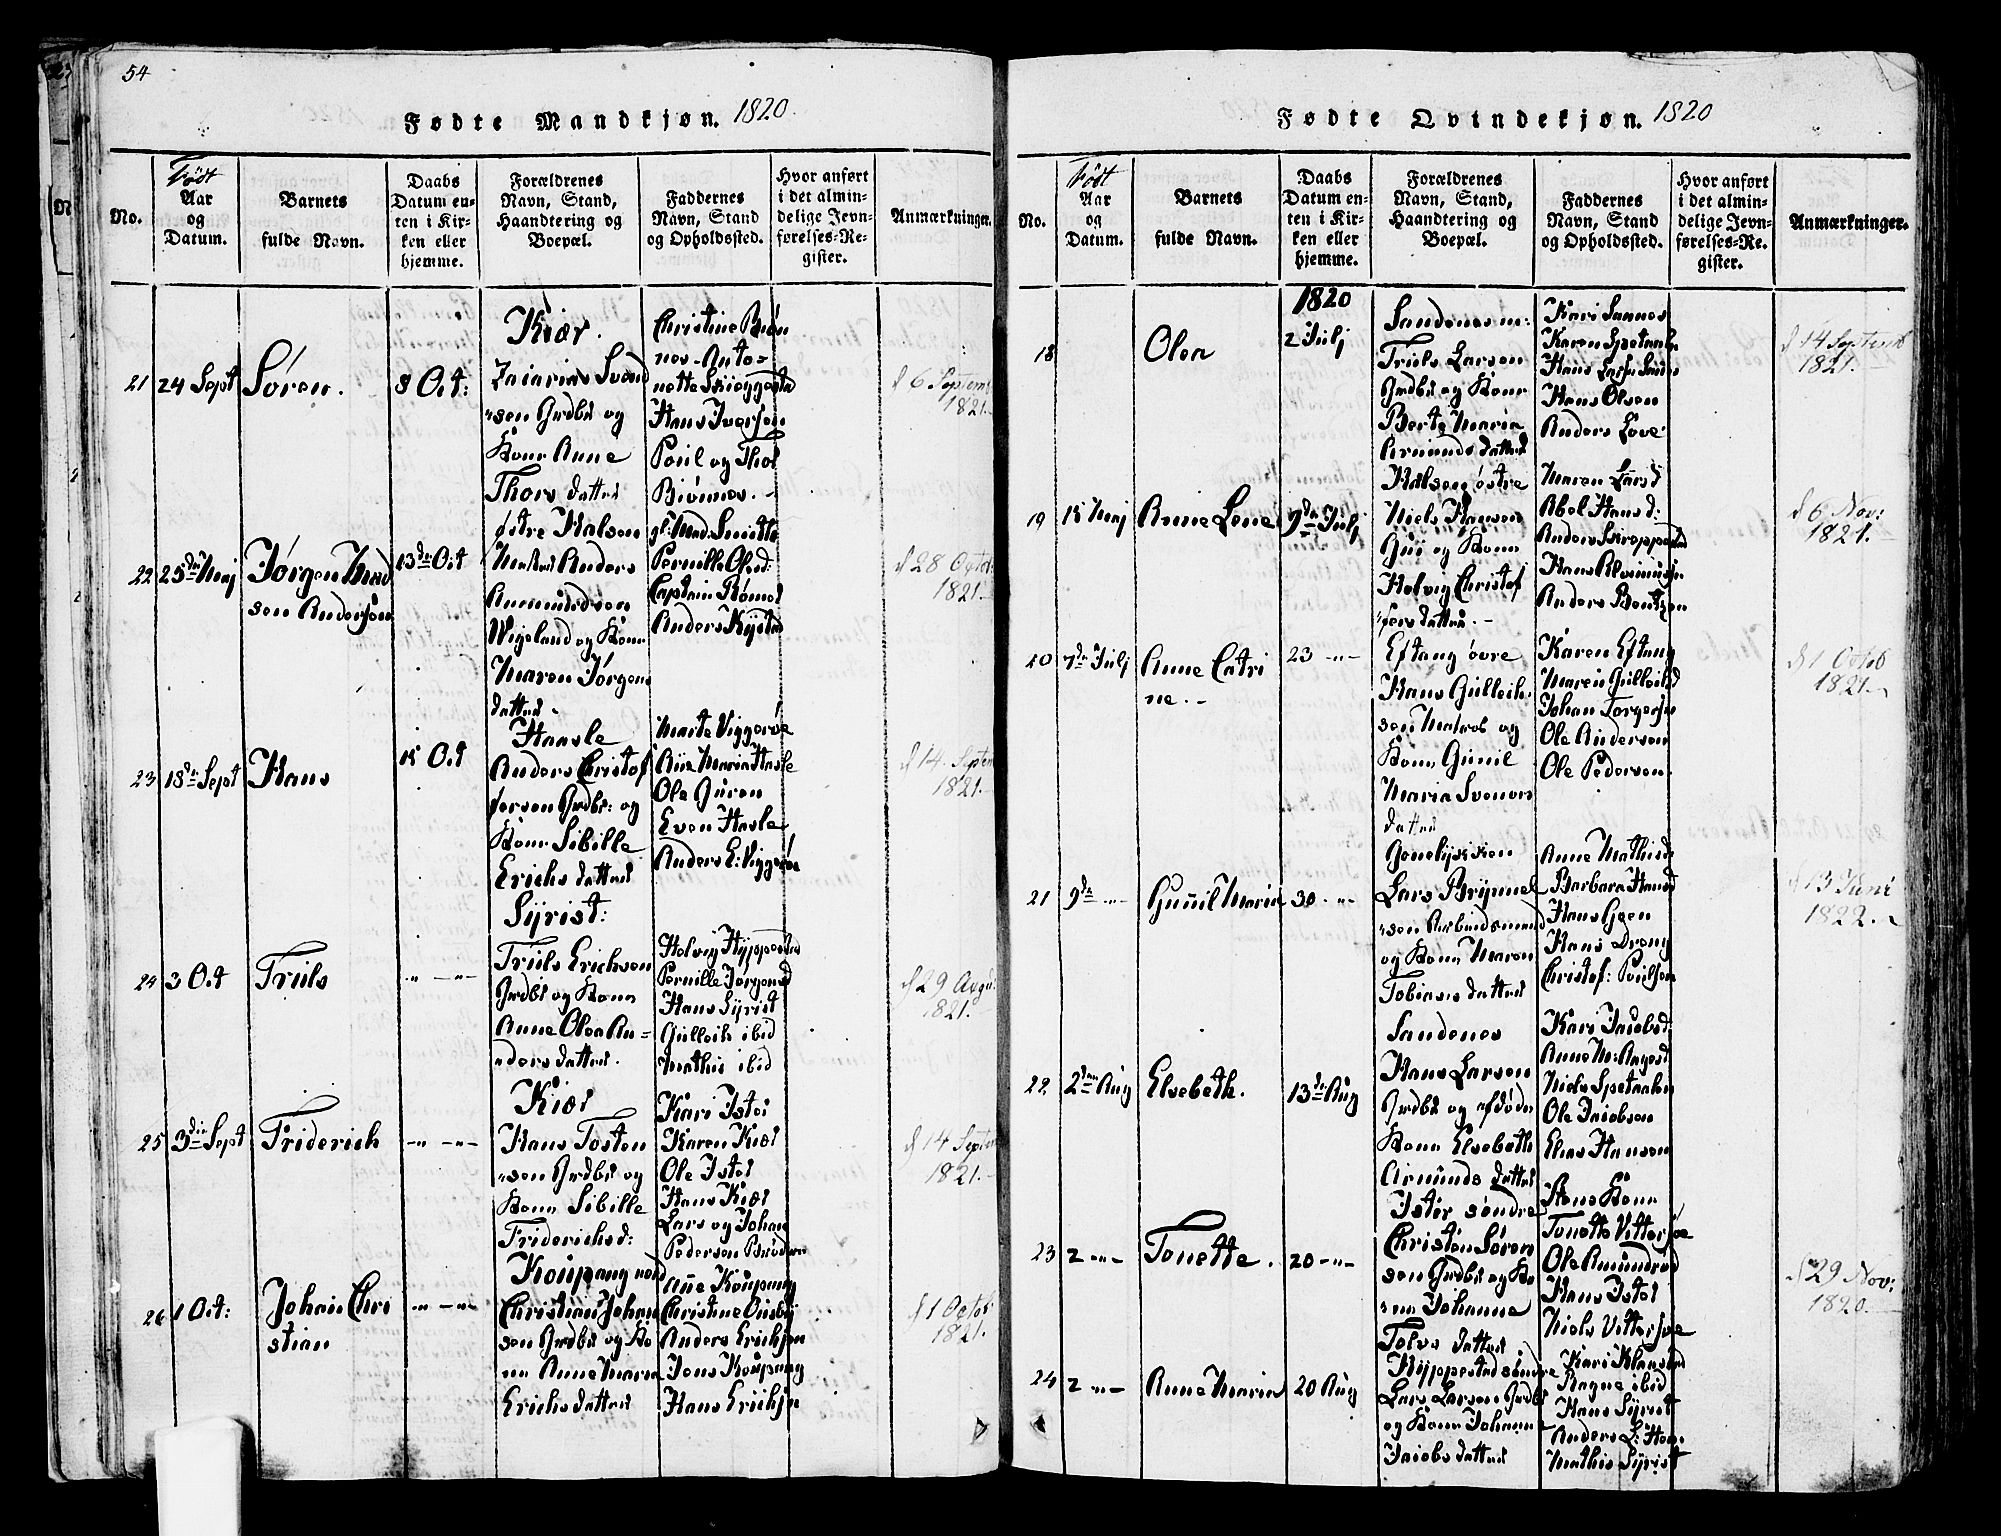 54
Fødte Mandkjøn. 1820
Født
No.
Aar og Datum.
Barnets fulde Navn.
Daabs Datum enten i Kirken eller hjemme.
Forældrenes Navn, Stand, Haandtering og Boepæl.
Faddernes Navn, Stand og Opholdssted.
Hvor anført i det almindelige Jevnførelses-Register.
Anmærkninger.
21
24 Sept
Søren.
8 Oct:
Kiær.
Zacarias Svend
sen Grdbr og
Kone Anne
Thors datter
Christine Biøn
nes
nette Skieggestad
Hans Iversen
Poul og Thor
Biønnes.
d 6 Septem
1821.
22
25de Maj
Jørgen Mad
sen Andersen
13de Oct
østre Halsen
Anders
Aanundsen
Wigeland og Kone
Maren Jørgens
datter.
gl: Mad. Smith
Pernille Olsd:
Captain Rømer
Anders Kystad
d 28 Octob:
1821.
23
18de Sept
Hans
15 Oct
Haasle
Anders Christof
fersen Grdbr: og
Kone Sibille
Erichs datter
Marte Viggerøe
Maria Hasle
Ole Guren
Even Hasle
Anders E: Viggerøe
d 14. Septem
1821.
24
3 Oct
Truls
" - "
Syrist:
Truls Erichsen
Grdbr og Kone
Anne Olea An-
ders datter.
Helvig Hyppestad
Pernille Jørgensd
Hans Syrist
Gulleik ibid
Mathis ibid
d 29 Augu:
1821.
25
3die Sept
Friderich
" - "
Kiær
Hans Tosten
sen Grdbr og
Kone Sibille
Friderichsd:
Kari Ister
Karen Kiær
Ole Ister
Hans Kiær
Lars og Johan
Pedersen
d 14 Septem
1821.
26
1 Oct:
Johan Chri
stian
" - "
Koupang nord
Christian Johan
sen Grdbr og Ko
ne Anne Maria
Erichs datter
Anne Koupang
Christine
Anders Erichsen
Jens Koupang
Hans Erichsen
d 1 Octob:
1821.
Fødte Qvindekjøn. 1820
Født
No.
Aar og Datum.
Barnets fulde Navn.
Daabs Datum enten i Kirken eller hjemme.
Forældrenes Navn, Stand, Haandtering og Boepæl.
Faddernes Navn, Stand og Opholdssted.
Hvor anført i det almindelige Jevnførelses-Register.
Anmærkninger.
1820
18
Olea
2 Julj
Sandenes
Truls Larsen
Grdbr og Kone
Berte Maria
Armunds datter
Kari Sannes
Karen Spetaalen
Hans Larsen
Hans Olsen
Anders Love
d 14 Septemb
1821.
19
15 Maj
Anne Lene
9de Julj
Halsen østre
Niels Hansen
og Kone
Helvig Christof
fers datter.
Maren Larsd
Abel Hansd:
Anders Skroppestad
Hans Rasmussen
Anders Bentzen
d 6 Nov:
1821.
20
7de Julj
Anne Catri
ne.
23 - "
Eftang øvre
Hans Gulleik-
sen Matros og
Kone Gunil
Maria
datter
Karen Eftang
Maren Gulleiksd
Johan Torgersen
Ole Andersen
Ole Pedersen.
d 1 Octob
1821.
21
9de "
Gunil Maria
30 - "
Lars Brynnel
sen Arbeidsmand
og Kone Maren
Tobiæs datter
Anne Mathisd:
Barbara Hansd
Hans Geen
Hans Dreng
Christof: Poulsen
d 13 Juni
1822.
22
2den Aug
Elsebeth.
13de Aug
Sandenes
Hans Larsen
Grdbr og afdøde
Kone Elsebeth
Armunds datter
Kari Jacobsd:
Anne M: Aagesd
Niels Spetaalen
Ole Jacobsen
Elias Hansen
23
2 " -
Tonette.
20 - "
Ister søndre
Christen Søren
sen Grdbr og Ko
ne Johanne
Tolvs datter
Kone
Tonette Vittersøe
Ole Amundrød
Hans Ister
Niels Vittersøe
d 29 Nov:
1820.
24
2 " -
Anne Maria
20 Aug
Hyppestad søndre
Lars Larsen Grdbr
og Kone Johanne
Jacobs datter
Kari Klanstad
Ragne ibid
Hans Syrist
Anders L: Hem
Mathis Syrist